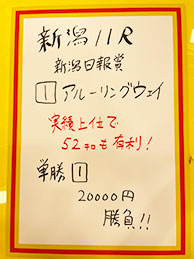 新潟11R
新潟日報賞
1 アルーリングウェイ
実績上位で
52キロも有利!
単勝 1
20000円
勝負!!